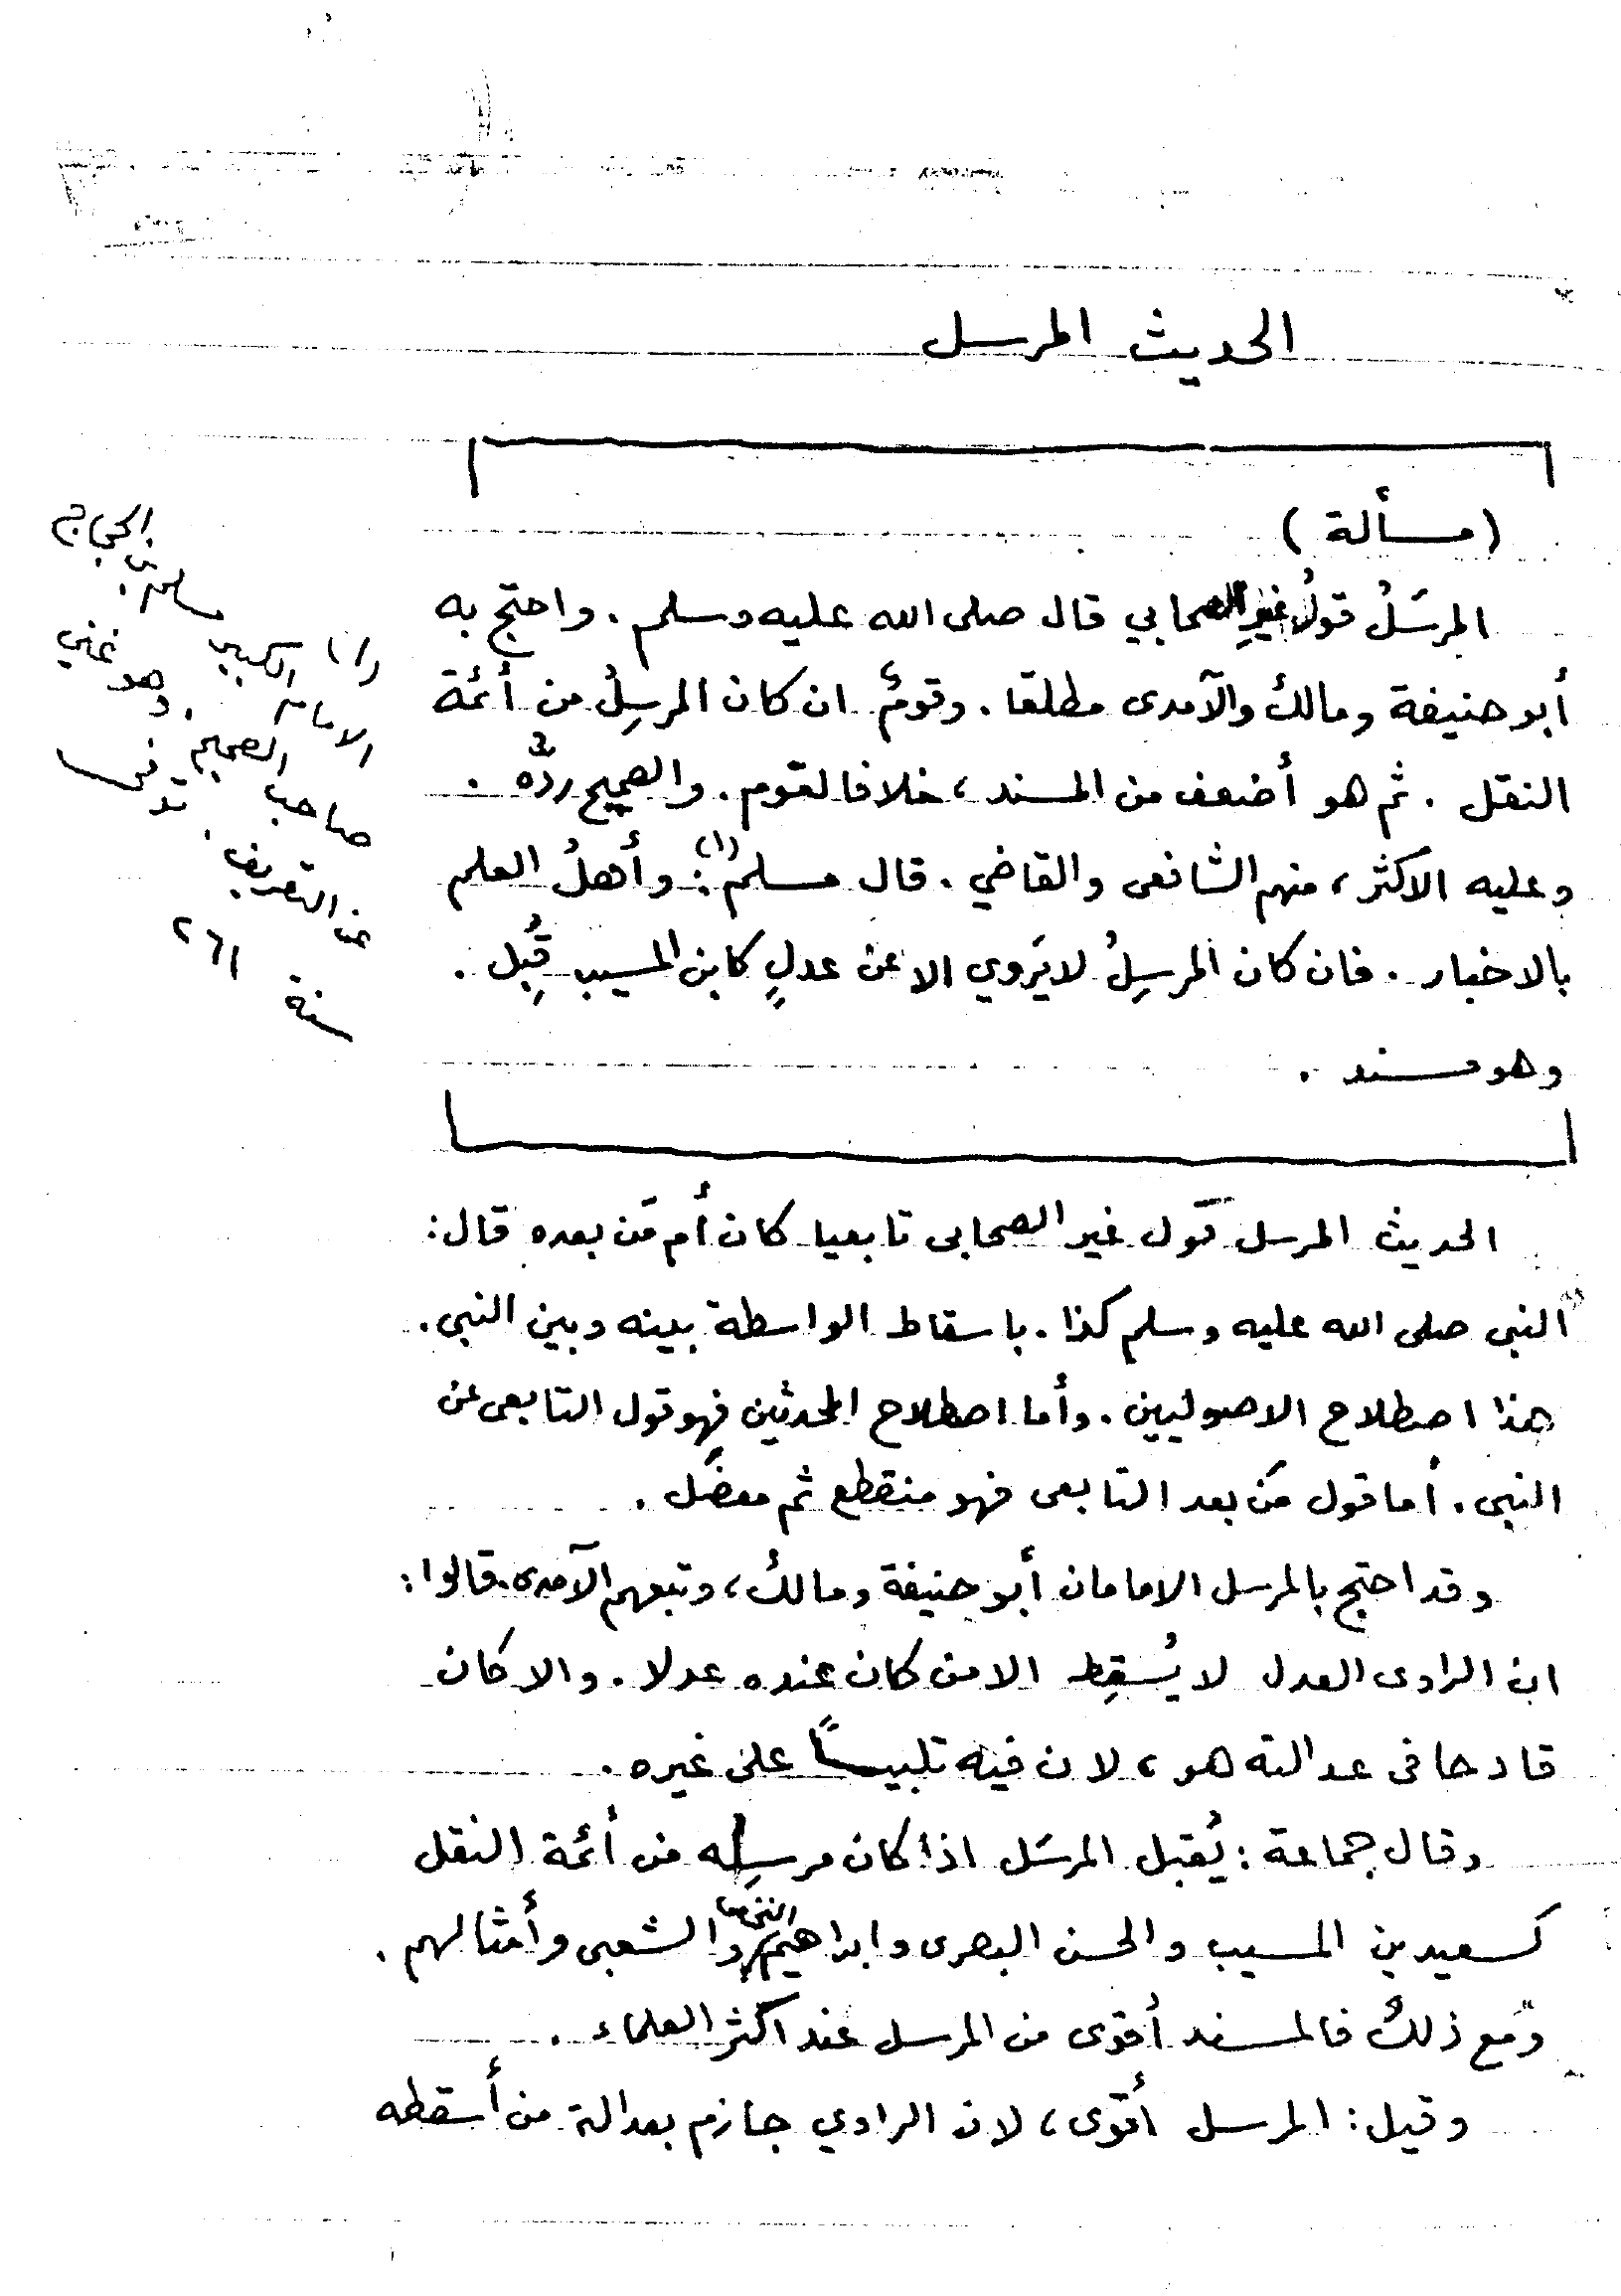 الحديث المرسل
(مسألة)
المرسَلُ قولُ غيرِ الصحابي قال صلى الله عليه وسلم. واحتج به
أبو حنيفة ومالك والآمدى مطلقا. وقومٌ ان كان المرسِلُ من أئمة
النقل. ثم هو أضعف من المسند، خلافا لقوم. والصحيح ردُّه.
وعليه الاكثر، منهم الشافعى والقاضي. قال مسلم(١): وأهلُ العلم
بالاخبار. فان كان المرسِلُ لا يَروي الا عن عدلٍ كابن المسيب قُبِل.
وهو مسند.
الحديث المرسل قول غير الصحابى تابعيا كان أم مَن بعده قال:
النبى صلى الله عليه وسلم كذا. باسقاط الواسطة بينه وبين النبى.
هذا اصطلاح الاصوليين. وأما اصطلاح المحدثين فهو قول التابعى عن
النبى. أما قول مَن بعد التابعى فهو منقطع ثم معضَل.
وقد احتج بالمرسل الامامان أبو حنيفة ومالك، وتبعهم الآمدى. قالوا:
ان الراوى العدل لا يُسقِط الا من كان عنده عدلا. والا كان
قادحا فى عدالته هو، لان فيه تلبيساً على غيره.
وقال جماعة: يُقبل المرسَل اذا كان مرسِله من أئمة النقل
كسعيد بن المسيب والحسن البصرى وابراهيم النخعى والشعبى وأمثالهم.
ومع ذلك فالمسند أقوى من المرسل عند اكثر العلماء.
وقيل: المرسل أقوى، لان الراوي جازم بعدالة من أسقطه
(١) الكبير مسلم بن الحجاج
الامام. وهو غني
صاحب الصحيح
عن التعريف. توفى
سنة ٢٦١